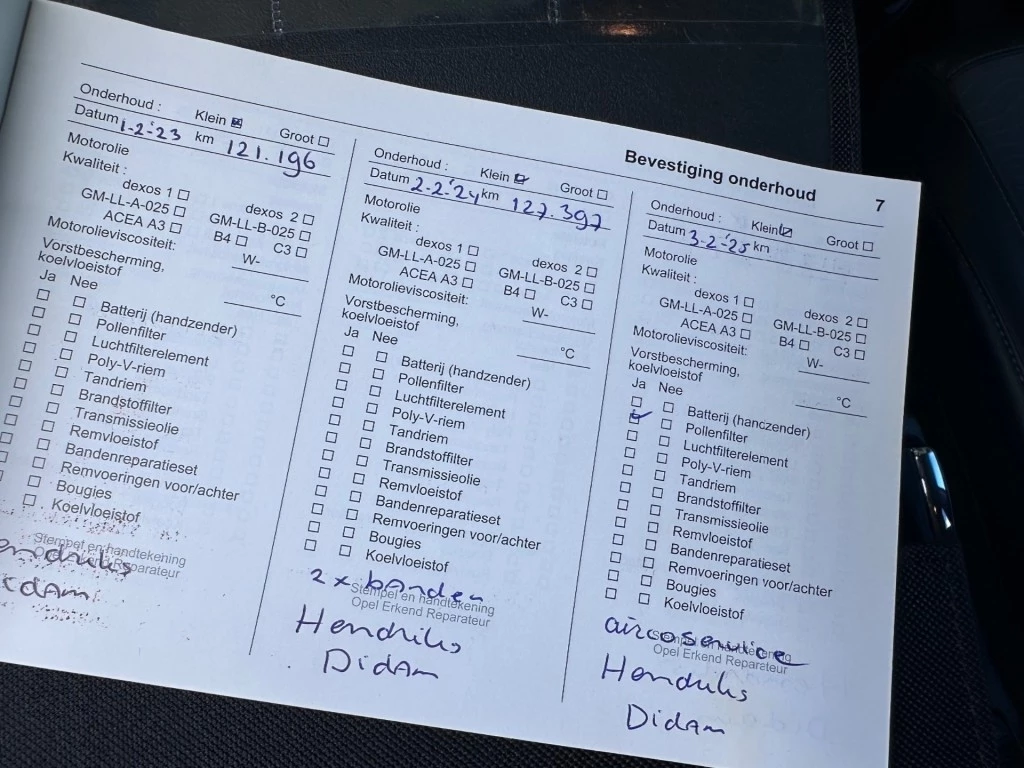 Bevestiging onderhoud 7
Onderhoud : Klein Groot
Datum 1-2-'23 km 121.196
Motorolie
Kwaliteit :
dexos 1 dexos 2
GM-LL-A-025 GM-LL-B-025
ACEA A3 B4 C3
Motorolieviscositeit: W-
Vorstbescherming,
koelvloeistof °C
Ja Nee
Batterij (handzender)
Pollenfilter
Luchtfilterelement
Poly-V-riem
Tandriem
Brandstoffilter
Transmissieolie
Remvloeistof
Bandenreparatieset
Remvoeringen voor/achter
Bougies
Koelvloeistof
Stempel en handtekening
Opel Erkend Reparateur
Onderhoud : Klein Groot
Datum 2-2-'24 km 127.397
Motorolie
Kwaliteit :
dexos 1 dexos 2
GM-LL-A-025 GM-LL-B-025
ACEA A3 B4 C3
Motorolieviscositeit: W-
Vorstbescherming,
koelvloeistof °C
Ja Nee
Batterij (handzender)
Pollenfilter
Luchtfilterelement
Poly-V-riem
Tandriem
Brandstoffilter
Transmissieolie
Remvloeistof
Bandenreparatieset
Remvoeringen voor/achter
Bougies
Koelvloeistof
2 x banden
Stempel en handtekening
Opel Erkend Reparateur
Hendriks
Didam
Onderhoud : Klein Groot
Datum 3-2-'25 km
Motorolie
Kwaliteit :
dexos 1 dexos 2
GM-LL-A-025 GM-LL-B-025
ACEA A3 B4 C3
Motorolieviscositeit: W-
Vorstbescherming,
koelvloeistof °C
Ja Nee
Batterij (handzender)
Pollenfilter
Luchtfilterelement
Poly-V-riem
Tandriem
Brandstoffilter
Transmissieolie
Remvloeistof
Bandenreparatieset
Remvoeringen voor/achter
Bougies
Koelvloeistof
aircoservice
Opel Erkend Reparateur
Hendriks
Didam